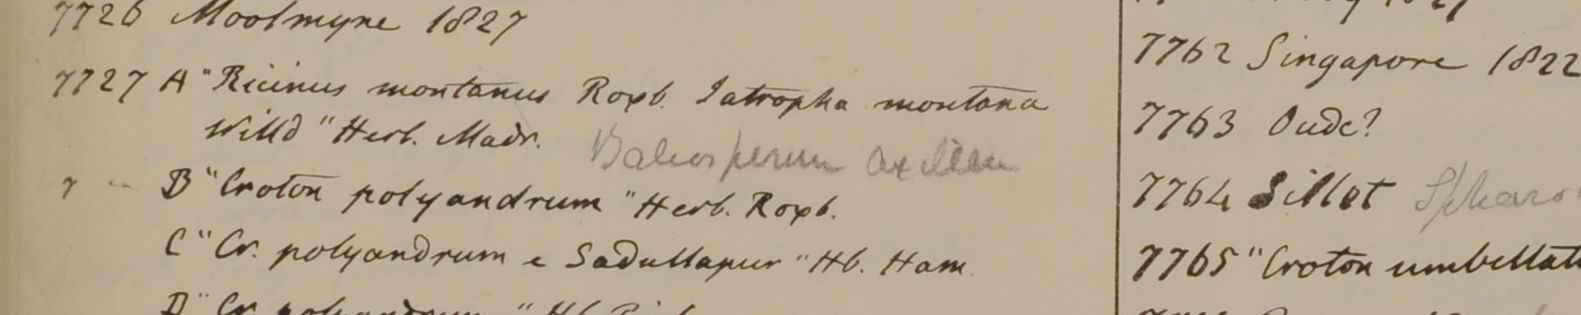 7726 Moolmyne 1827
7727 A "Ricinus montanus Roxb. Iatropha montana
Willd" Herb. Madr. Baliospermum axillare
B "Croton polyandrum" Herb. Roxb.
C "Cr. polyandrum e Sadullapur" Hb. Ham.
D "Cr. polyandrum" Hb.
7762 Singapore 1822
7763 Oude?
7764 Sillet
7765 "Croton umbellat